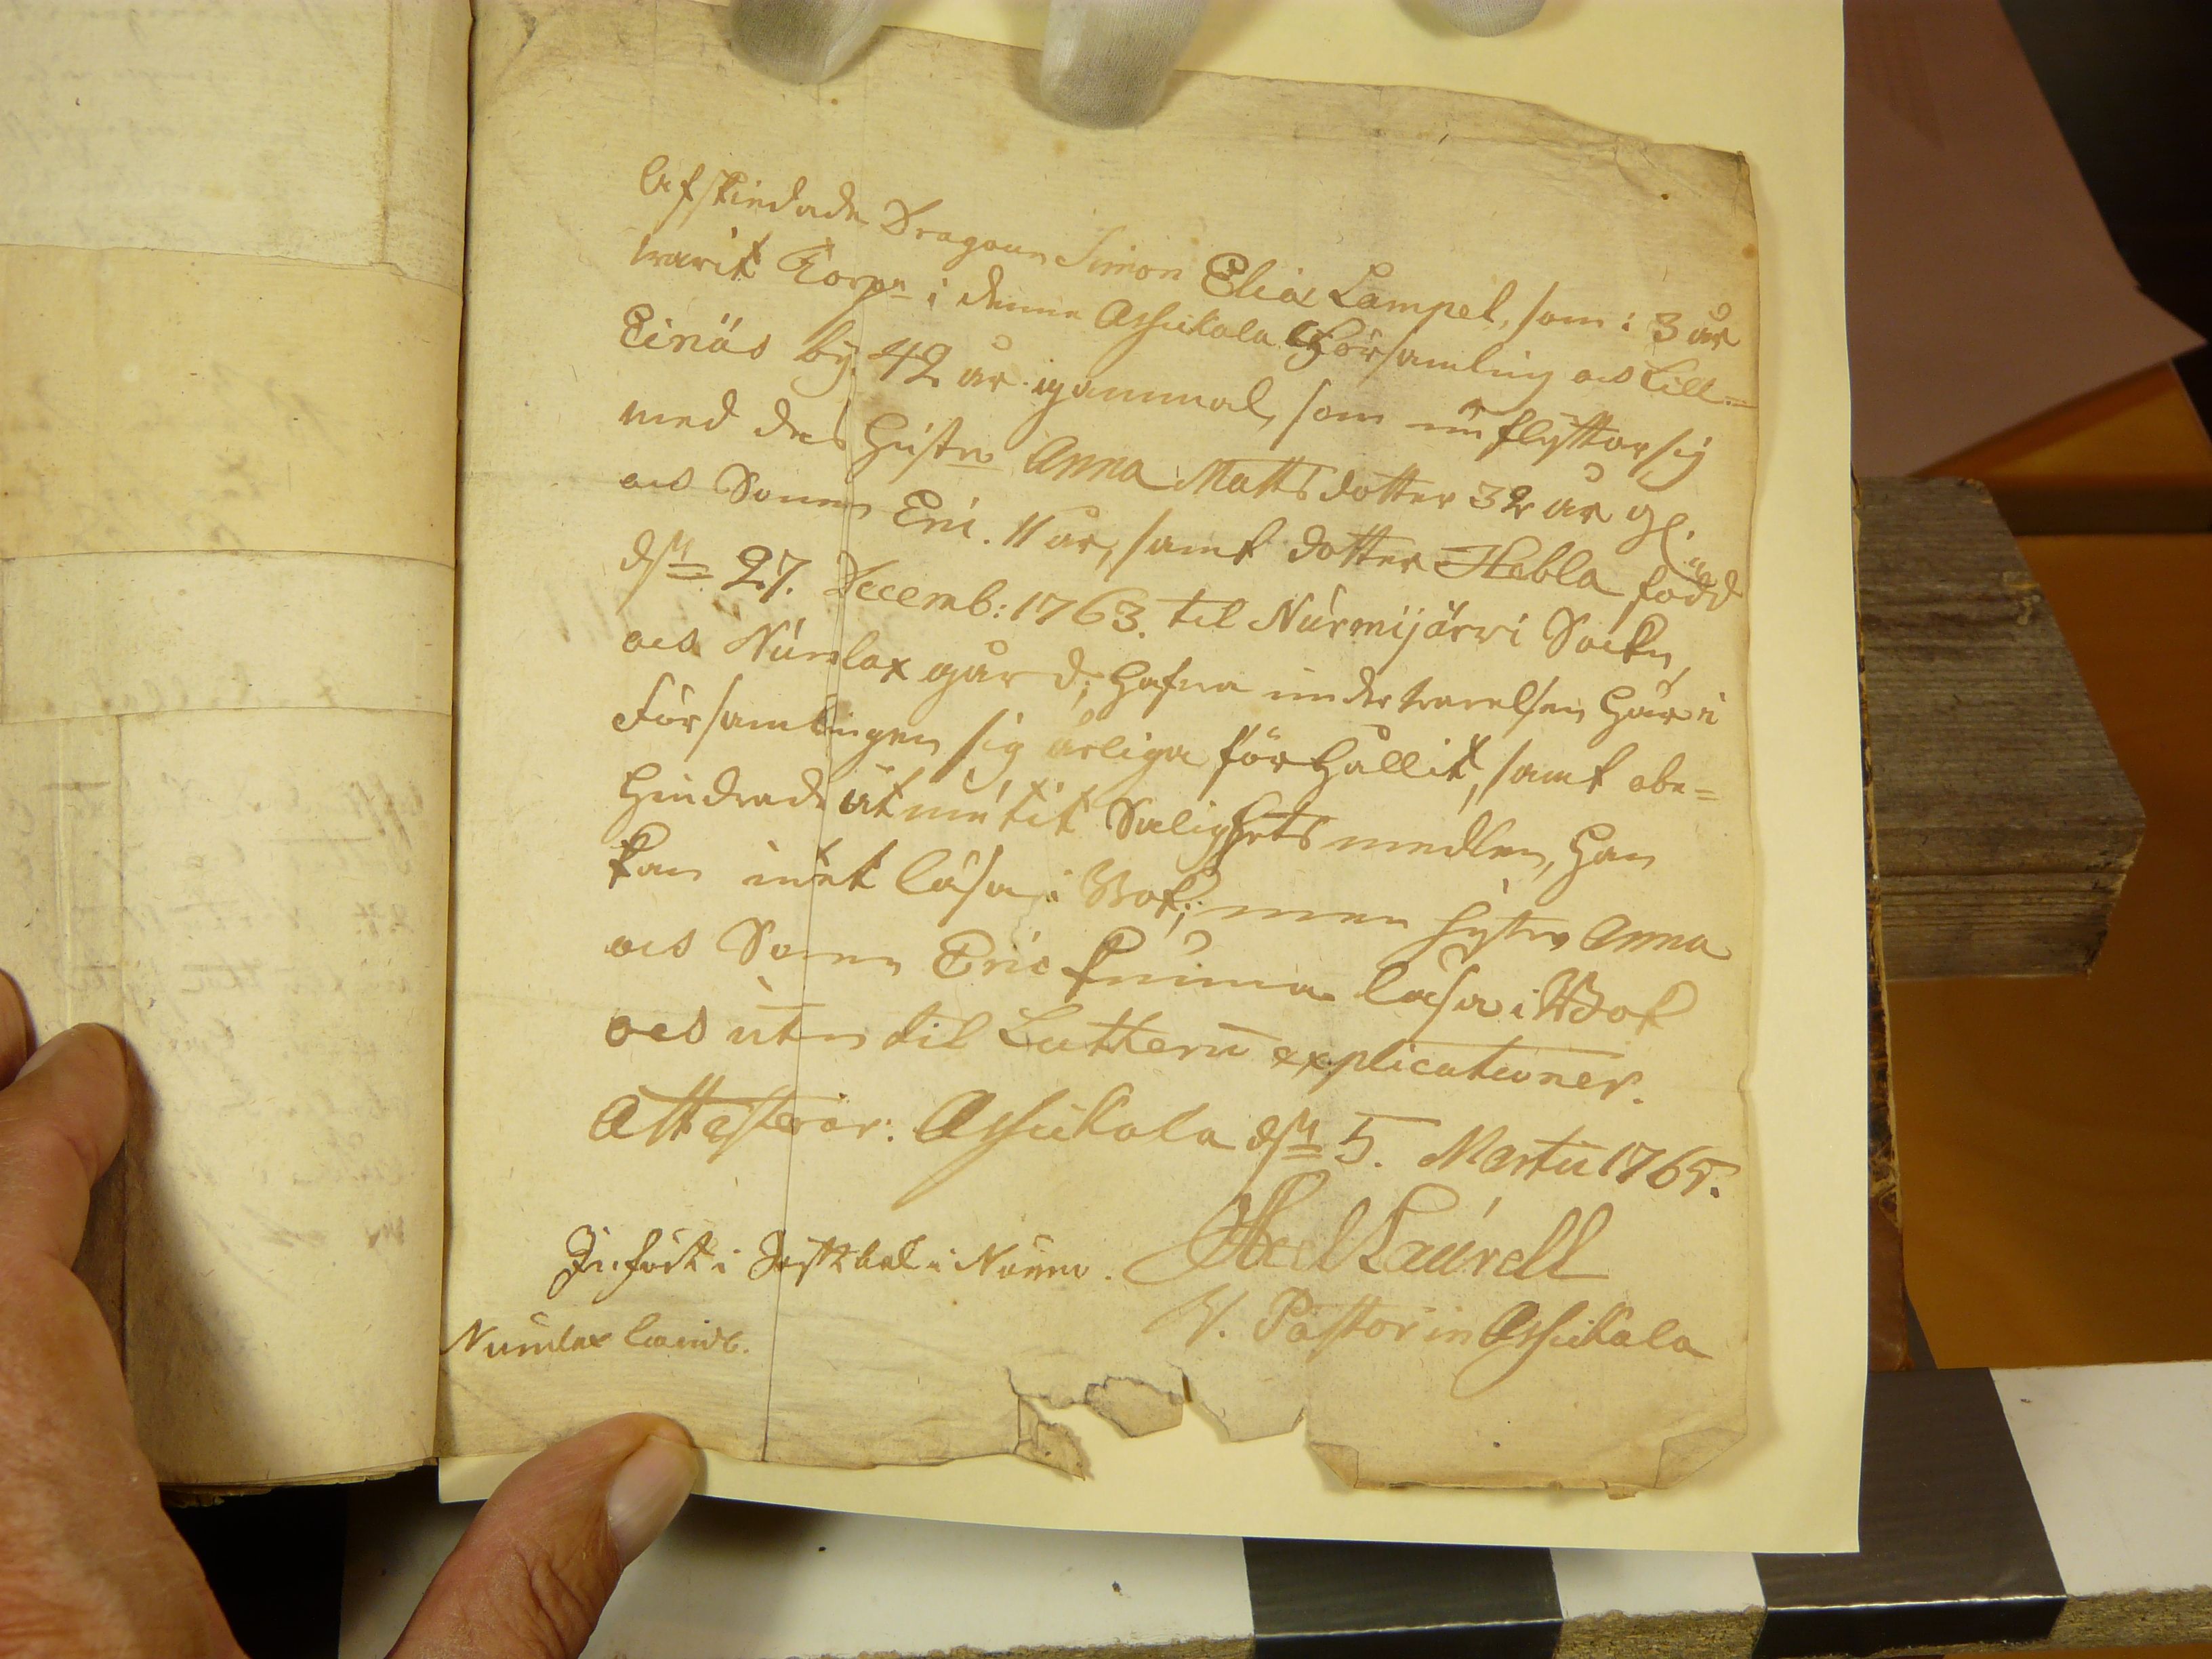 Afskiedade Dragoun Simon Elias Lampel, som i 3 år
warit Torpare i denna Assikala Församling och Lill-
Einäs by, 42 år gammal, som nu flyttar sig
med des Hustru Anna Mattsdotter 32 år gl.
och Sonen Eric. 11 år, samt dotter Hebla född
dn 27. Decemb: 1763. til Nurmijärvi Sockn,
och Numlax gård; Hafva under warelsen här i
Församlingen sig ärliga förhållit, samt obe-
hindrade åtniutit Salighets medlen, Han
kan intet läsa i Bok; men hustru Anna
och Sonen Eric kunna läsa i Bok
och uten til Lutheri explicationer.
Attesterar. Assikala dn 5. Martii 1765.
Axel Laurell
V. Pastor in Assikala
Infört i i Nurm.
Numlax